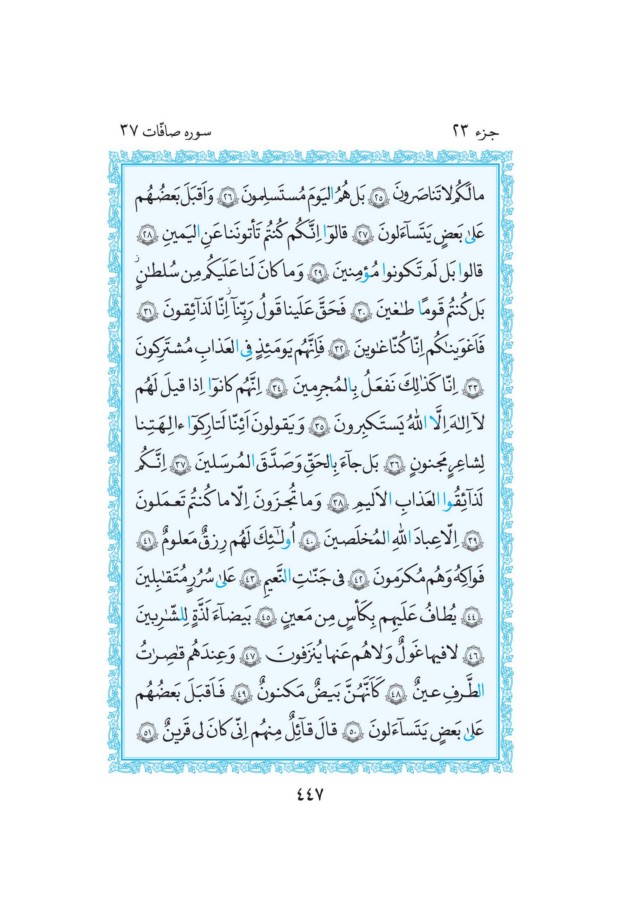 جزء ٢٣
سوره صافّات ٣٧
مالَكُم لاتَناصَرونَ ﴿٢٥﴾ بَل هُمُ اليَومَ مُستَسلِمونَ ﴿٢٦﴾ وَاَقبَلَ بَعضُهُم
عَلىٰ بَعضٍ يَتَسآءَلونَ ﴿٢٧﴾ قالوٓا اِنَّكُم كُنتُم تَأتونَنا عَنِ اليَمينِ ﴿٢٨﴾
قالوا بَل لَم تَكونوا مُؤمِنينَ ﴿٢٩﴾ وَما كانَ لَنا عَلَيكُم مِن سُلطٰنٍ
بَل كُنتُم قَومًا طٰغينَ ﴿٣٠﴾ فَحَقَّ عَلَينا قَولُ رَبِّنآ اِنّا لَذآئِقونَ ﴿٣١﴾
فَاَغوَينٰكُم اِنّا كُنّا غٰوينَ ﴿٣٢﴾ فَاِنَّهُم يَومَئِذٍ فِي العَذابِ مُشتَرِكونَ
﴿٣٣﴾ اِنّا كَذٰلِكَ نَفعَلُ بِالمُجرِمينَ ﴿٣٤﴾ اِنَّهُم كانوٓا اِذا قيلَ لَهُم
لآ اِلٰهَ اِلَّا اللهُ يَستَكبِرونَ ﴿٣٥﴾ وَيَقولونَ اَئِنّا لَتارِكوٓا ءالِهَتِنا
لِشاعِرٍ مَجنونٍ ﴿٣٦﴾ بَل جآءَ بِالحَقِّ وَصَدَّقَ المُرسَلينَ ﴿٣٧﴾ اِنَّكُم
لَذآئِقُوا العَذابِ الاَليمِ ﴿٣٨﴾ وَما تُجزَونَ اِلّا ما كُنتُم تَعمَلونَ
﴿٣٩﴾ اِلّا عِبادَ اللهِ المُخلَصينَ ﴿٤٠﴾ اُولٰٓئِكَ لَهُم رِزقٌ مَعلومٌ ﴿٤١﴾
فَواكِهُ وَهُم مُكرَمونَ ﴿٤٢﴾ في جَنّٰتِ النَّعيمِ ﴿٤٣﴾ عَلىٰ سُرُرٍ مُتَقٰبِلينَ
﴿٤٤﴾ يُطافُ عَلَيهِم بِكَأسٍ مِن مَعينٍ ﴿٤٥﴾ بَيضآءَ لَذَّةٍ لِلشّٰرِبينَ
﴿٤٦﴾ لا فيها غَولٌ وَلا هُم عَنها يُنزَفونَ ﴿٤٧﴾ وَعِندَهُم قٰصِرٰتُ
الطَّرفِ عينٌ ﴿٤٨﴾ كَاَنَّهُنَّ بَيضٌ مَكنونٌ ﴿٤٩﴾ فَاَقبَلَ بَعضُهُم
عَلىٰ بَعضٍ يَتَسآءَلونَ ﴿٥٠﴾ قالَ قآئِلٌ مِنهُم اِنّي كانَ لي قَرينٌ ﴿٥١﴾
٤٤٧